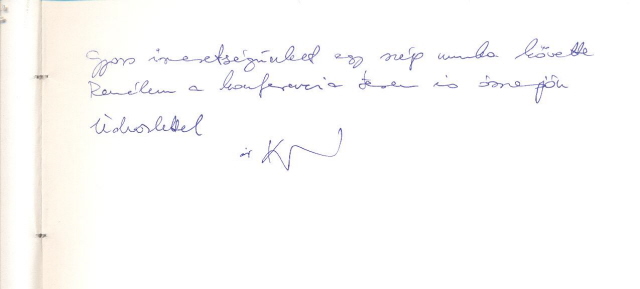 Gyors ismeretségünket egy szép munka követte
Remélem a konferencia terem is összejön
Üdvözlettel